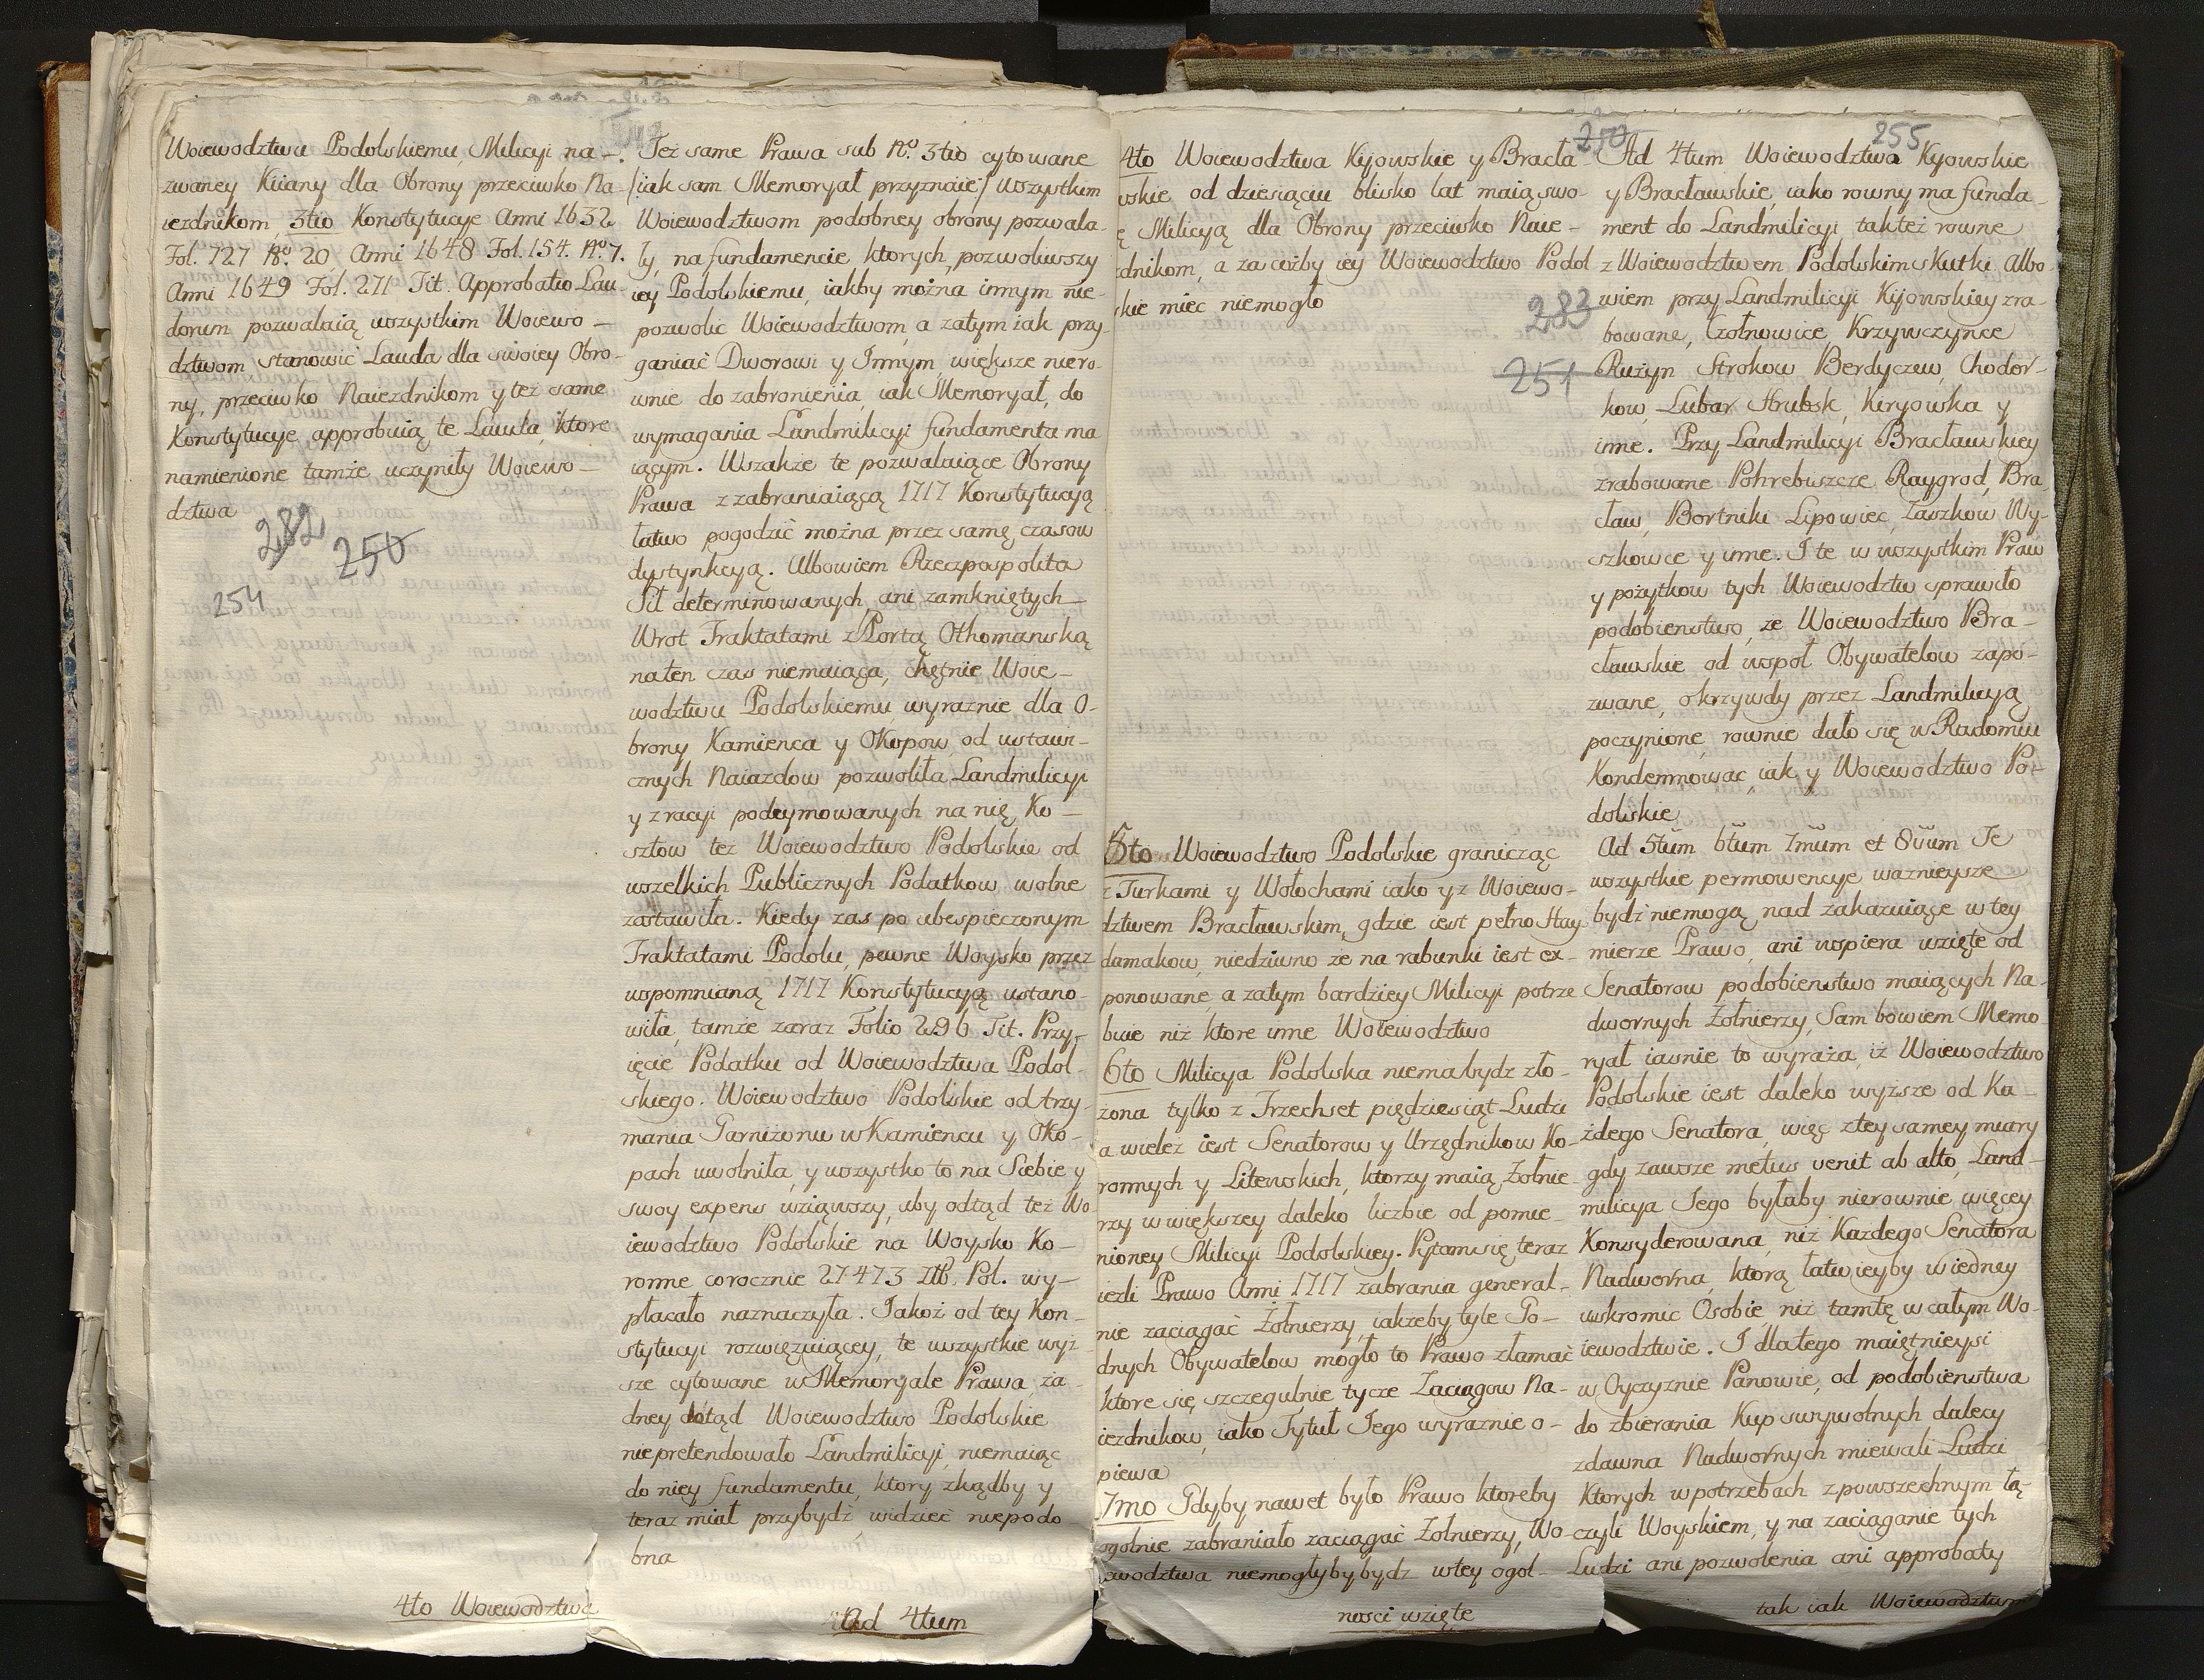 Woiewodztwu Podolskiemu, Milicyi na-
zwaney Kiiany dla Obrony przeciwko Na-
iezdnikom, 3tio Konstytucye Anni 1632
Fol. 727 No. 20 Anni 1648 Fol. 154. No. 7.
Anni 1649 Fol. 271 Tit. Approbatio Lau-
dorum pozwalaią wszystkim Woiewo-
dztwom stanowić Lauda dla swoiey Obro-
ny, przeciwko Naiezdnikom y też same
Konstytucye approbuią te Lauda, ktore
namienione tamże uczyniły Woiewo-
dztwa
282
250
254
4to Woiewodztwa
Też same Prawa sub No. 3tio cytowane
/iak sam Memoryał przyznaie/ wszystkim
Woiewodztwom podobney obrony pozwala-
ły, na fundamencie ktorych pozwoliwszy
iey Podolskiemu, iakby można innym nie-
pozwolic Woiewodztwom, a zatym iak przy-
ganiać Dworowi y Innym, większe niero-
wnie do zabronienia, iak Memoryał, do
wymagania Landmilicyi fundamenta ma
iącym. Wszakże te pozwalaiące Obrony
Prawa z zabraniaiącą 1717 Konstytucyą
łatwo pogodzić można przez samę czasow
dystynkcyą. Albowiem Rzeczpospolita
Sił determinowanych, ani zamkniętych
Wrot Traktatami z Portą Othomańską
naten czas niemaiąca, chętnie Woie-
wodztwu Podolskiemu wyraznie dla O-
brony Kamienca y Okopow od ustawi-
cznych Naiazdow pozwoliła Landmilicyi
y z racyi podeymowanych na nię Ko-
sztow też Woiewodztwo Podolskie od
wszelkich Publicznych Podatkow wolne
zostawiła. Kiedy zas po ubespieczonym
Traktatami Podolu, pewne Woysko przez
wspomnianą 1717 Konstytucyą ustano-
wiła, tamże zaraz Folio 296 Tit. Przy-
ięcie Podatku od Woiewodztwa Podol-
skiego. Woiewodztwo Podolskie od trzy-
mania Garnizonu w Kamiencu y Oko-
pach uwolniła, y wszystko to na Siebie y
swoy expens wziąwszy, aby odtąd też Wo
iewodztwo Podolskie na Woysko Ko-
ronne corocznie 27473 Złł. Pol. wy-
płacało naznaczyła. Jakoż od tey Kon-
stytucyi rozwięzuiącey, te wszystkie wyż-
sze cytowane w Memoryale Prawa, ża-
dney dotąd Woiewodztwo Podolskie
niepretendowało Landmilicyi, niemaiąc
do niey fundamentu, ktory zkądby y
teraz miał przybydź, widzieć niepodo-
bna
Ad 4tum
4to Woiewodztwa Kijowskie y Bracła-
wskie od dziesiąciu blisko lat maią swo-
ę Milicyą dla Obrony przeciwko Naie-
zdnikom, a za cóżby iey Woiewodztwo Podol
skie miec niemogło
283
251
5to Woiewodztwo Podolskie granicząc
z Turkami y Wołochami iako y z Woiewo-
dztwem Bracławskim, gdzie iest pełno Hay-
damakow, niedziwno ze na rabunki iest ex-
ponowane, a zatym bardziey Milicyi potrze
buie niż ktore inne Woiewodztwo
6to Milicya Podolska niema bydz zło-
żona tylko z Trzechset pięćdziesiąt Ludzi
a wieleż iest Senatorow y Urzędnikow Ko-
ronnych y Litewskich, ktorzy maią Żołnie-
rzy w większey daleko liczbie od pomie-
nioney Milicyi Podolskiey. Pytam się teraz
iezli Prawo Anni 1717 zabrania general-
nie zaciągać Żołnierzy, iakżeby tyle Go-
dnych Obywatelow mogło to Prawo złamać
ktore się szczegulnie tycze Zaciągow Na-
iezdnikow, iako Tytuł Jego wyraznie o-
piewa
7mo Gdyby nawet było Prawo ktoreby
ogolnie zabraniało zaciągać Żołnierzy, Wo-
iewodztwa niemogłyby bydz w tey ogol-
nosci wzięte
250
255
Ad 4tum Woiewodztwa Kijowskie
y Bracławskie, iako rowny ma funda-
ment do Landmilicyi takteż rowne
z Woiewodztwem Podolskim skutki. Albo-
wiem przy Landmilicyi Kijowskiey zra-
bowane, Czołnowice, Krzywczynce
Rużyn Strokow Berdyczew, Chodor-
kow, Lubar Hrubsk, Keryowka y
inne. Przy Landmilicyi Bracławskiey
zrabowane Pohrebiszcze Raygrod, Bra
cław, Bortniki Lipowiec, Zaszkow Wy-
szkowce y inne. I te w wszystkim Praw
y pożytkow tych Woiewodztw sprawiło
podobienstwo, ze Woiewodztwo Bra-
cławskie od wspoł Obywatelow zapo-
zwane, o krzywdy przez Landmilicyą
poczynione, rownie dało się w Radomiu
Kondemnować, iak y Woiewodztwo Po-
dolskie
Ad 5tum 6tum 7mum et 8vum Te
wszystkie permowencye ważnieysze
bydź niemogą nad zakazuiące w tey
mierze Prawo, ani wspiera wzięte od
Senatorow podobienstwo maiących Na-
dwornych Żołnierzy, Sam bowiem Memo
ryał iawnie to wyraża, iż Woiewodztwo
Podolskie iest daleko wyższe od Ka-
żdego Senatora, więc z tey samey miary
gdy zawsze metus venit ab alto, Land-
milicya Jego byłaby nierownie więcey
Konsyderowana, niż Każdego Senatora
Nadworna, ktorą łatwieyby w iedney
uskromic Osobie, niż tamtę w całym Wo-
iewodztwie. I dlatego maiętnieysi
w Oyczyznie Panowie, od podobienstwa
do zbierania Kup swywolnych dalecy
zdawna Nadwornych miewali Ludzi
Ktorych w potrzebach z powszechnym łą-
czyli Woyskiem, y na zaciąganie tych
Ludzi ani pozwolenia ani approbaty
tak iak Woiewodztwom